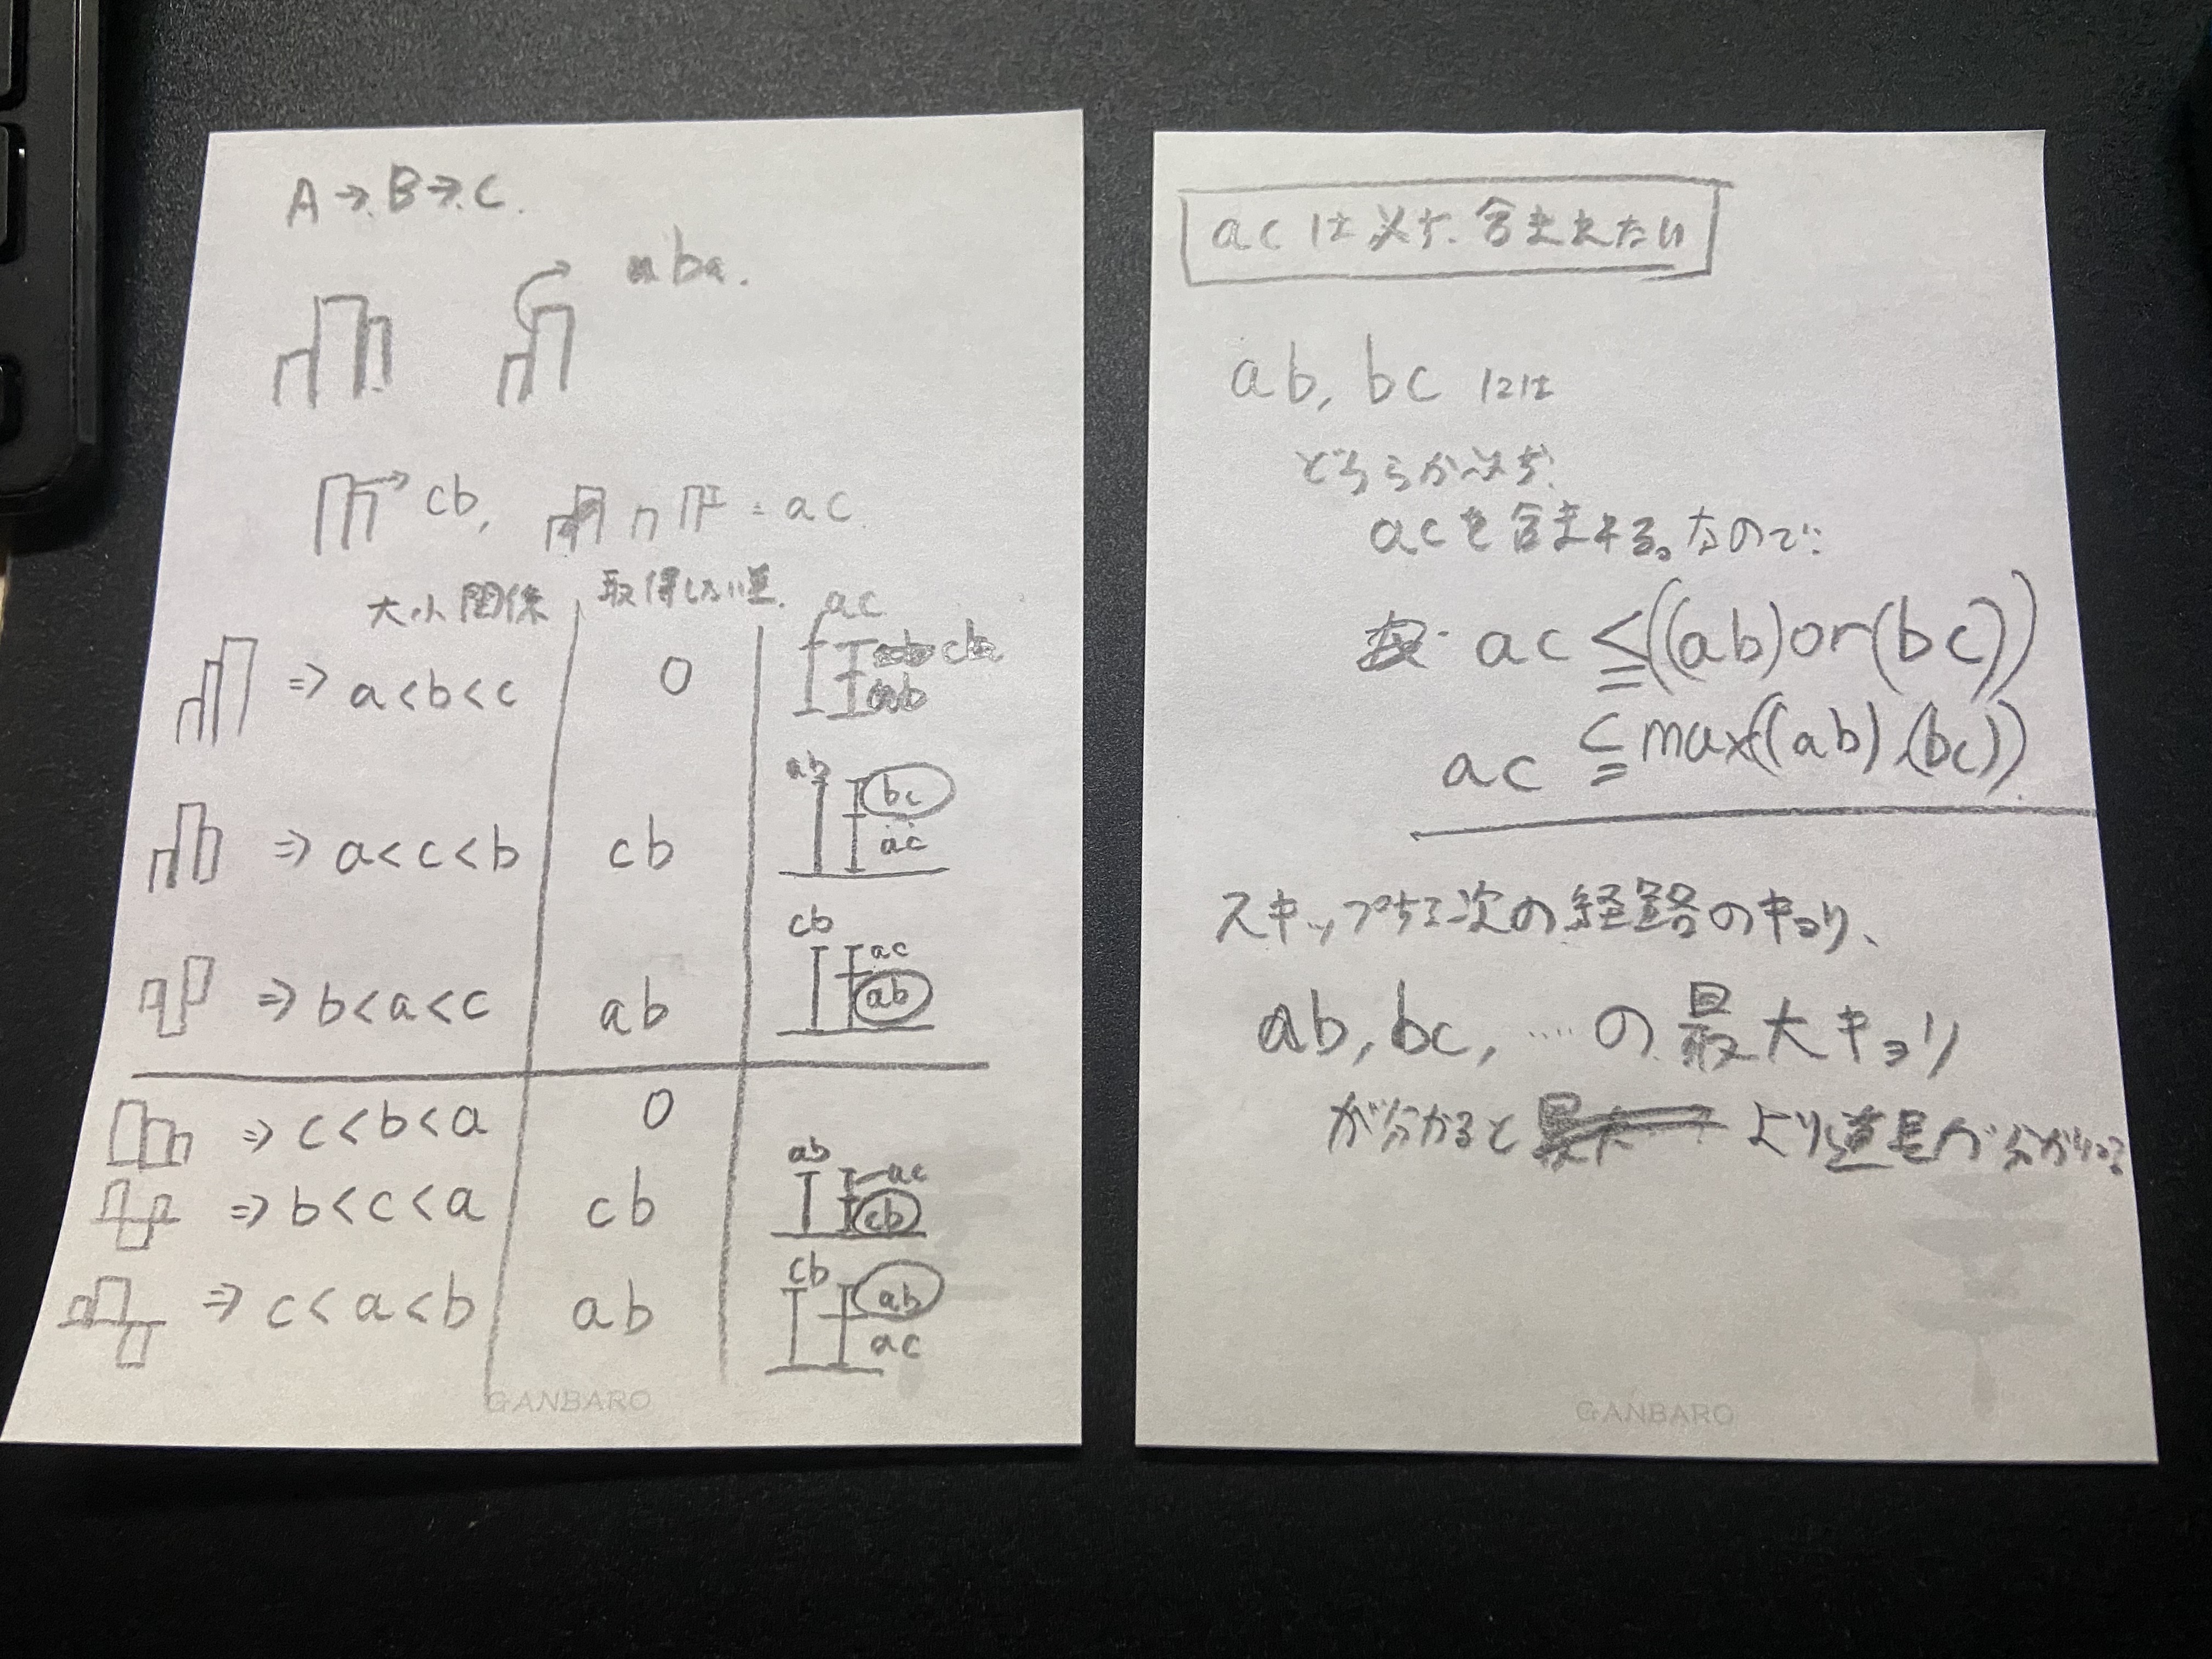 A→.B→.C.
ba.
cb,
= ac.
大小関係 取得したい逆.
ac
⇒ a<b<c 0
cb
ab
⇒ a<c<b cb
ab bc
ac
⇒ b<a<c ab
cb ac
ab
⇒ c<b<a 0
⇒ b<c<a cb
ab ac
cb
⇒ c<a<b ab
cb ab
ac
GANBARO
acは必ず.含まれない
ab, bc には
どちらか必ず.
acを含まれる。なので:
ac ≦((ab)or(bc))
ac ≦max((ab),(bc))
スキップする次の経路のキョリ、
ab, bc, ….の最大キョリ
が分かると より
GANBARO